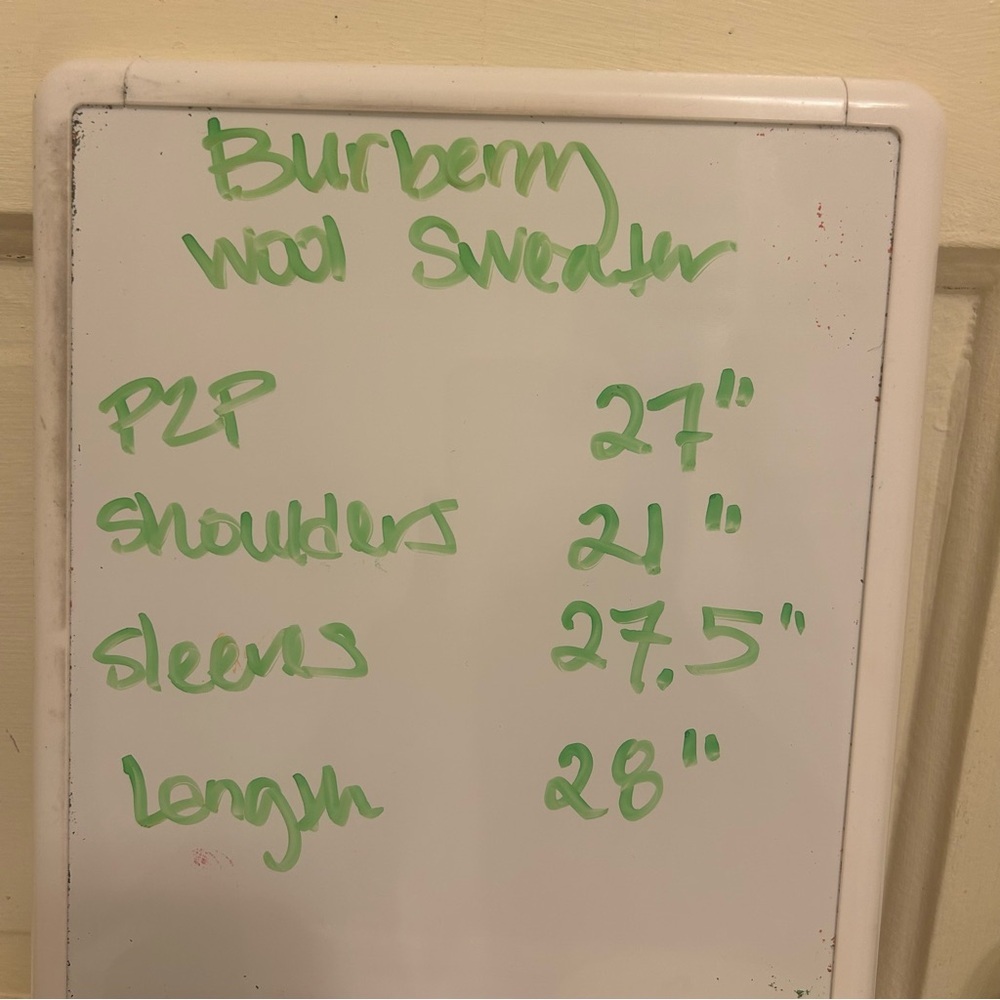 Burberry
Wool Sweater
P2P 27"
Shoulders 21"
Sleeves 27.5"
Length 28"